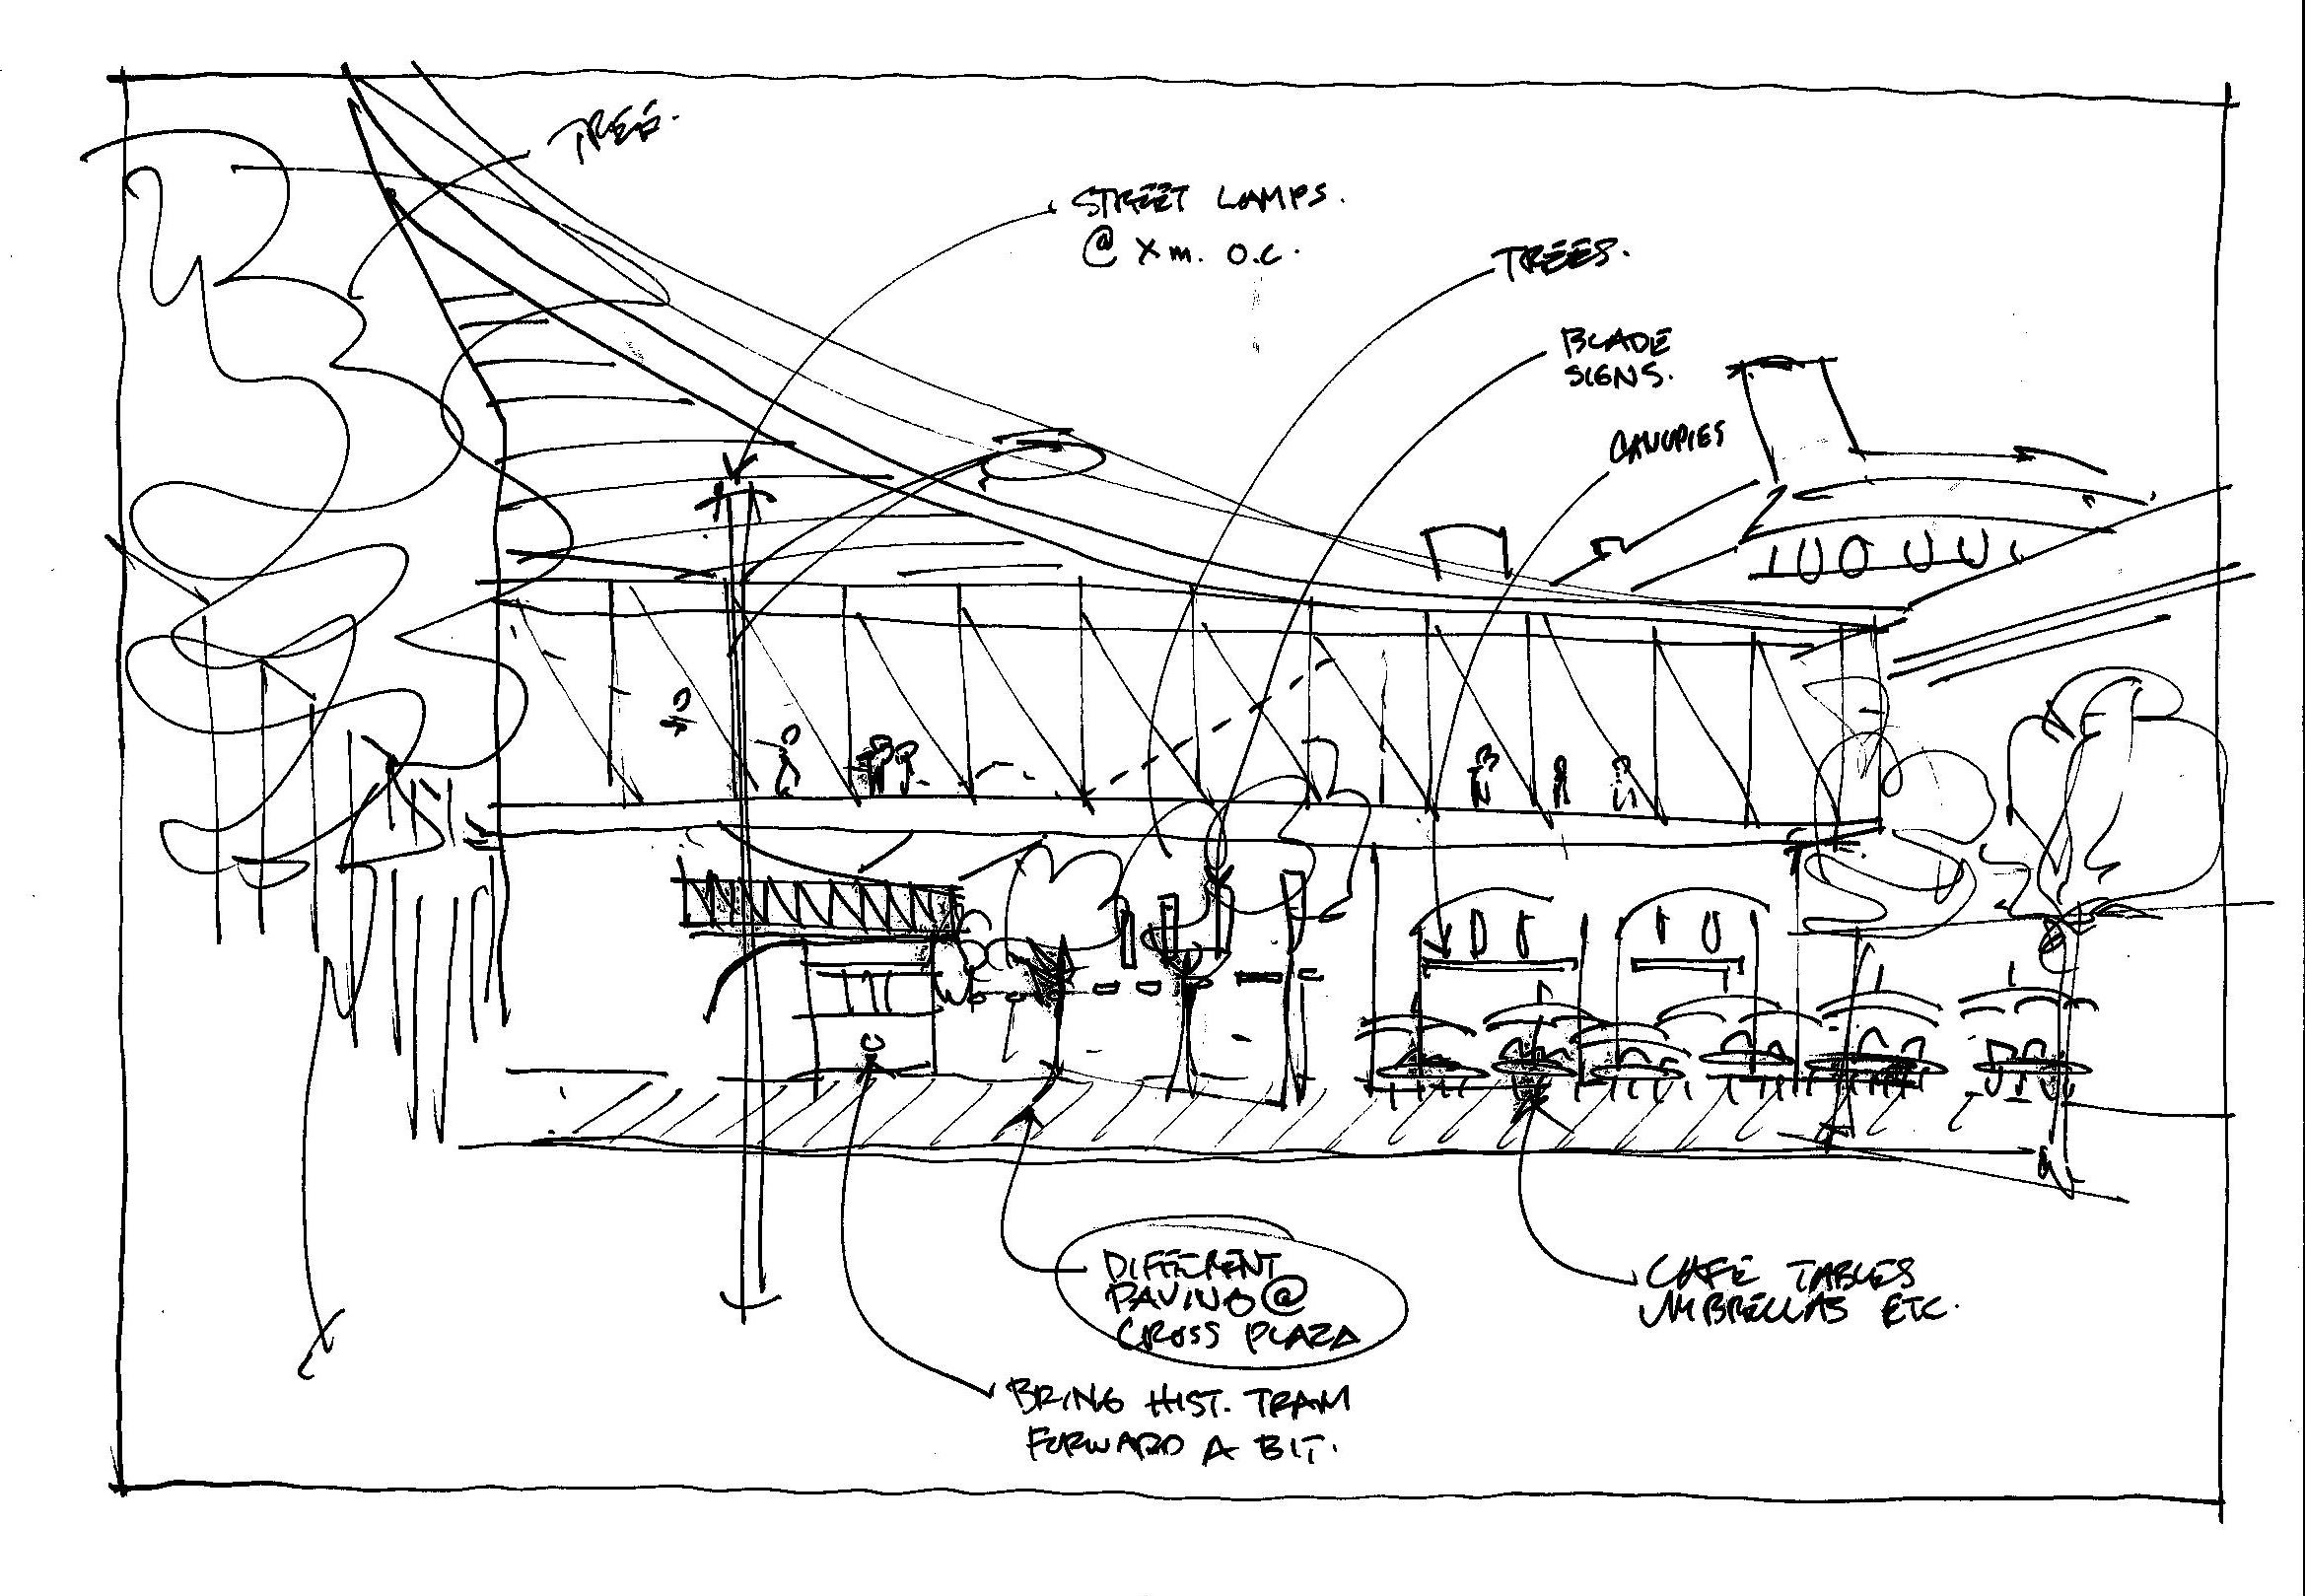 TREE.
STREET LAMPS.
@ Xm. O.C.
TREES.
BLADE
SIGNS.
CANOPIES
DIFFERENT
PAVING @
CROSS PLAZA
CAFE TABLES
UMBRELLAS ETC.
BRING HIST. TRAM
FORWARD A BIT.